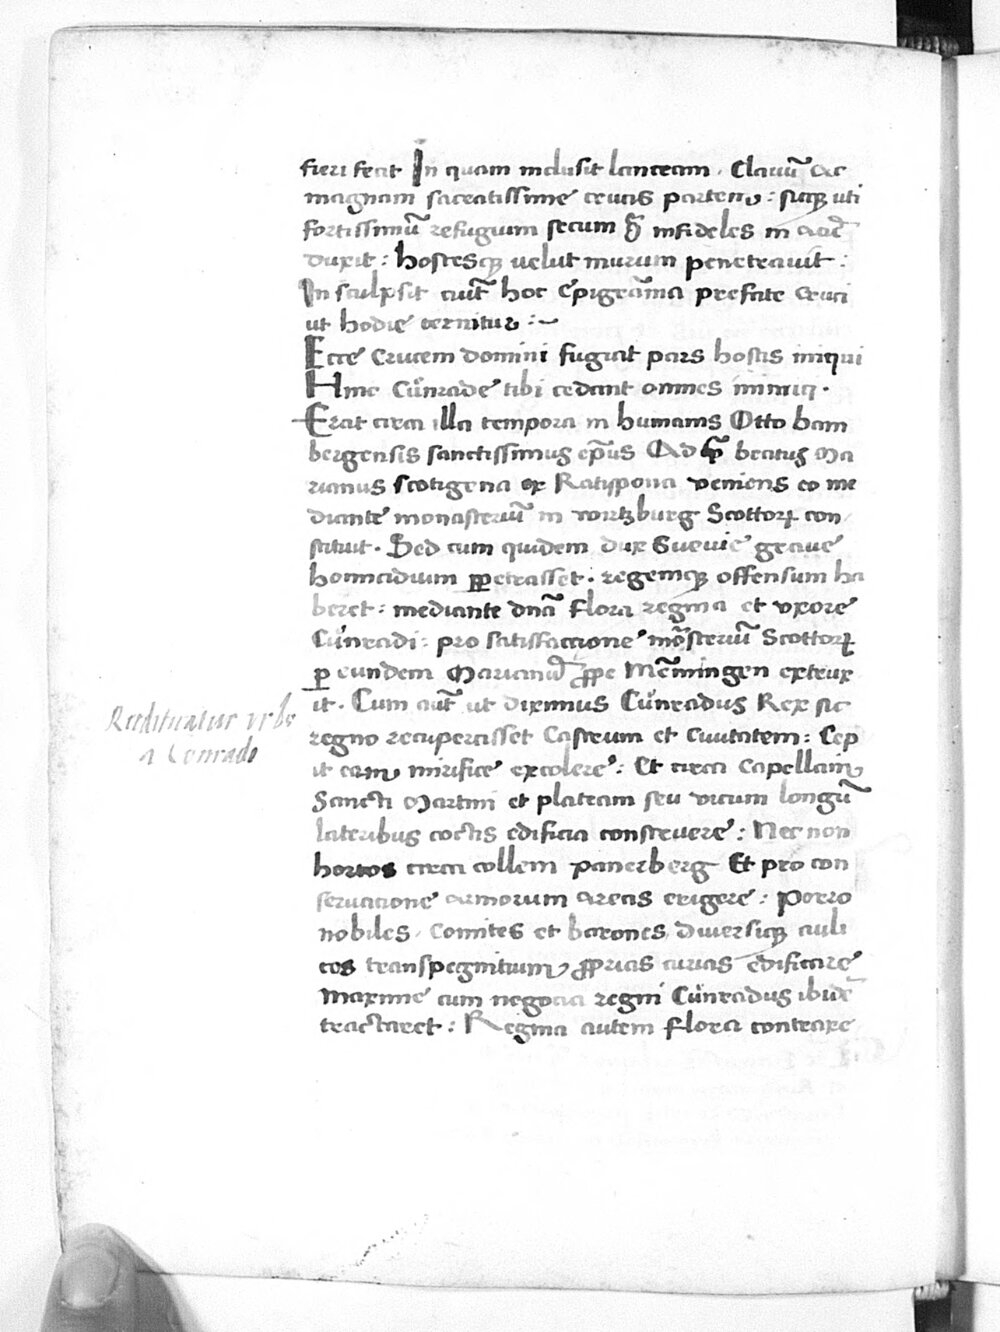 fieri fecit In quam inclusit lanceam. Clauū ac
magnam sacratissime crucis partem: sicq uti
fortissimū refugium secum ꝓ infideles in acie
duxit: hostesq velut murum penetrauit:
In sculpsit aut̄ hoc epigrāma prefate cruci
ut hodie cernitur:~
Ecce Crucem domini fugiat pars hostis iniqui
Hinc Cůnrade tibi cedant omnes inimici.
Erat circa illa tempora in humanis Otto bam
bergensis sanctissimus ep̄us Ad quē beatus Ma
rianus scotigena ex Ratispona veniens eo me
diante monasteriū in wirtzburg Scottoꝝ con
stituit. Sed cum quidem dux Sueuie graue
homicidium ꝑpetrasset. regemq offensum ha
beret: mediante dn̄a Flora regina et vxore
Cůnradi: pro satisfaccione mōsteriū Scottoꝝ
ꝑ eundem Marianū ꝓpe Mēmingen extrux
it. Cum aut̄ ut diximus Cůnradus Rex sic
regno recuperasset Castrum et Ciuitatem: Cep
it eam mirifice excolere: Et circa Capellam
Sancti Martini et plateam seu vicum longū
lateribus coctis edificia construere: Nec non
hortos circa collem panerberg Et pro con
seruacione armorum arcas erigere: Porro
nobiles, Comites et barones, diuersiq auli
cos transpegnitium ꝓprias curias edificare
maxime cum negocia regni Cůnradus ibidē
tractaret: Regina autem Flora contrare
Reedificatur vrbs
a Conrado